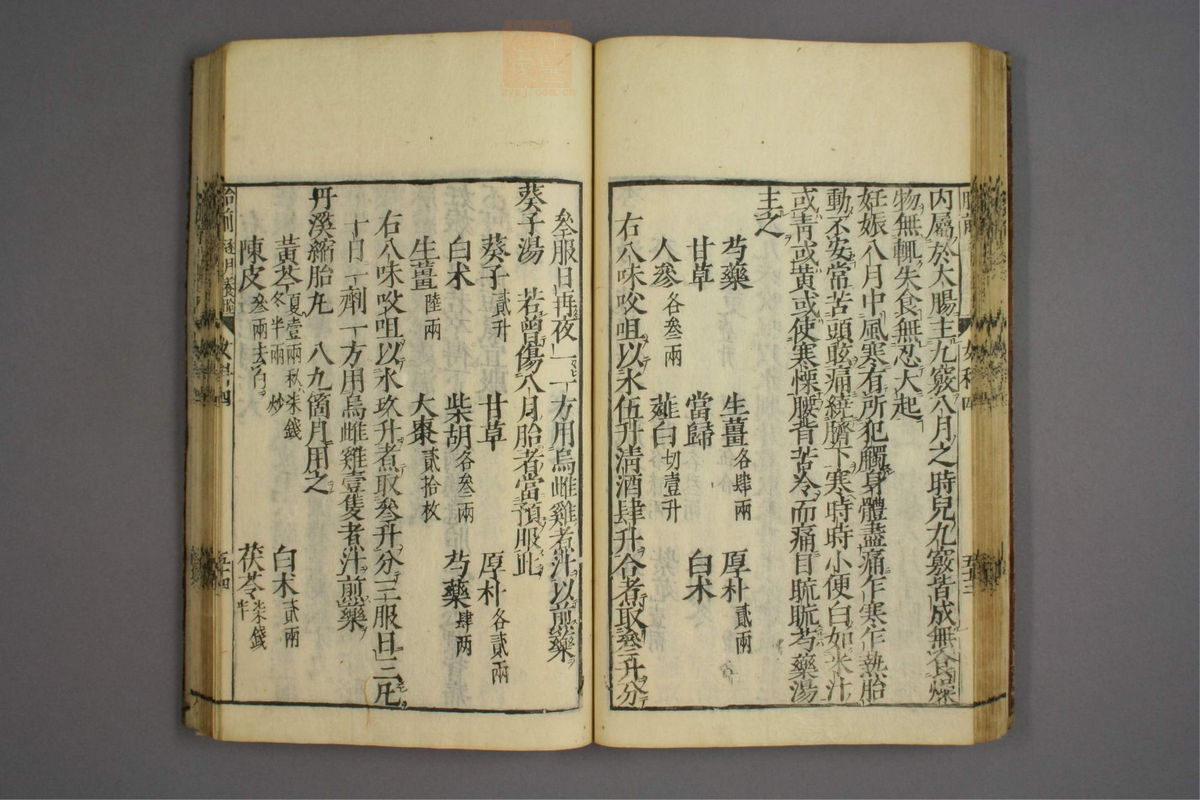 内屬於大腸主九竅八月之時兒九竅皆成無食燥
物無輒失食無忍大起
妊娠八月中風寒有所犯觸身體盡痛乍寒乍熱胎
動不安常苦頭眩痛繞臍下寒時時小便白如米汁
或青或黃或使寒慄腰背苦冷而痛目䀮䀮芍藥湯
主之
芍藥 生薑各肆兩 厚朴貳兩
甘草 當歸 白术
人參各叁兩 薤白切壹升
右八味㕮咀以水伍升清酒肆升合煮取叄升分
叄服日再夜一一方用烏雌雞煮汁以煎藥
葵子湯 若曾傷八月胎者當預服此
葵子貳升 甘草 厚朴各貳兩
白术 柴胡各叁兩 芍藥肆两
生薑陸兩 大棗貳拾枚
右八味㕮咀以水玖升煮取叄升分三服日三凡
十日一劑一方用烏雌雞壹隻煮汁煎藥
丹溪縮胎丸 八九箇月用之
黃芩夏壹兩秋柒錢冬半兩 炒 白术貳兩
陳皮叁兩去白 茯苓柒錢半
胎前
女科 四
五十三
胎前
女科 四
五十四